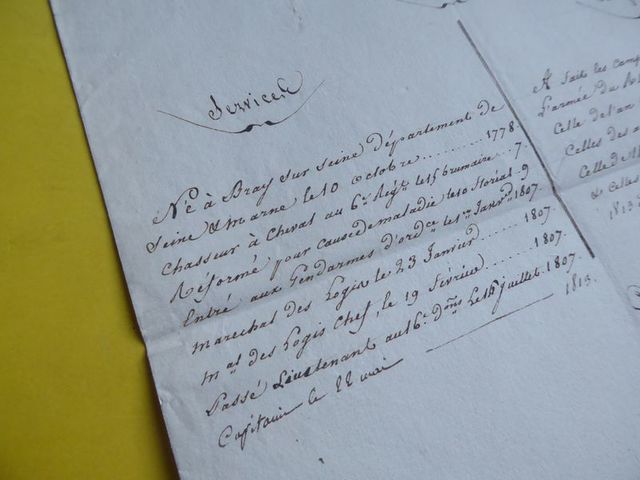 Services
Né à Bray sur seine département de
seine & marne le 10 octobre .......... 1778.
chasseur à cheval au 6e Régt le 15 brumaire 7.
Réformé pour cause de maladie le 10 florial 9
Entré aux Gendarmes d'ordce le 1er Janvr 1807.
marechal des Logis le 23 Janvier ....... 1807.
mal des Logis chef, le 19 février ...... 1807.
Passé Lieutenant au 16e le 16 juillet. 1807.
Capitaine le 22 mai 1813.
A faits les camp
L'armée du
Celle de l'an
Celles des
Celle d'
& celles
1813